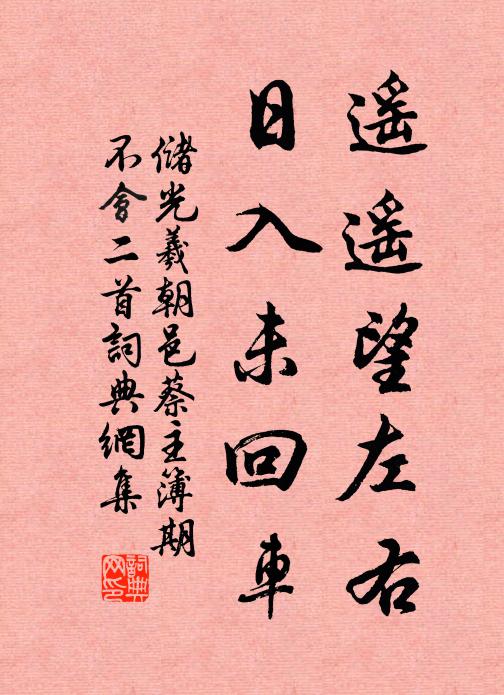 遥遥望左右
日入未回車
儲光羲朝邑蔡主簿期
不會二首詞典網集
詞典
网印